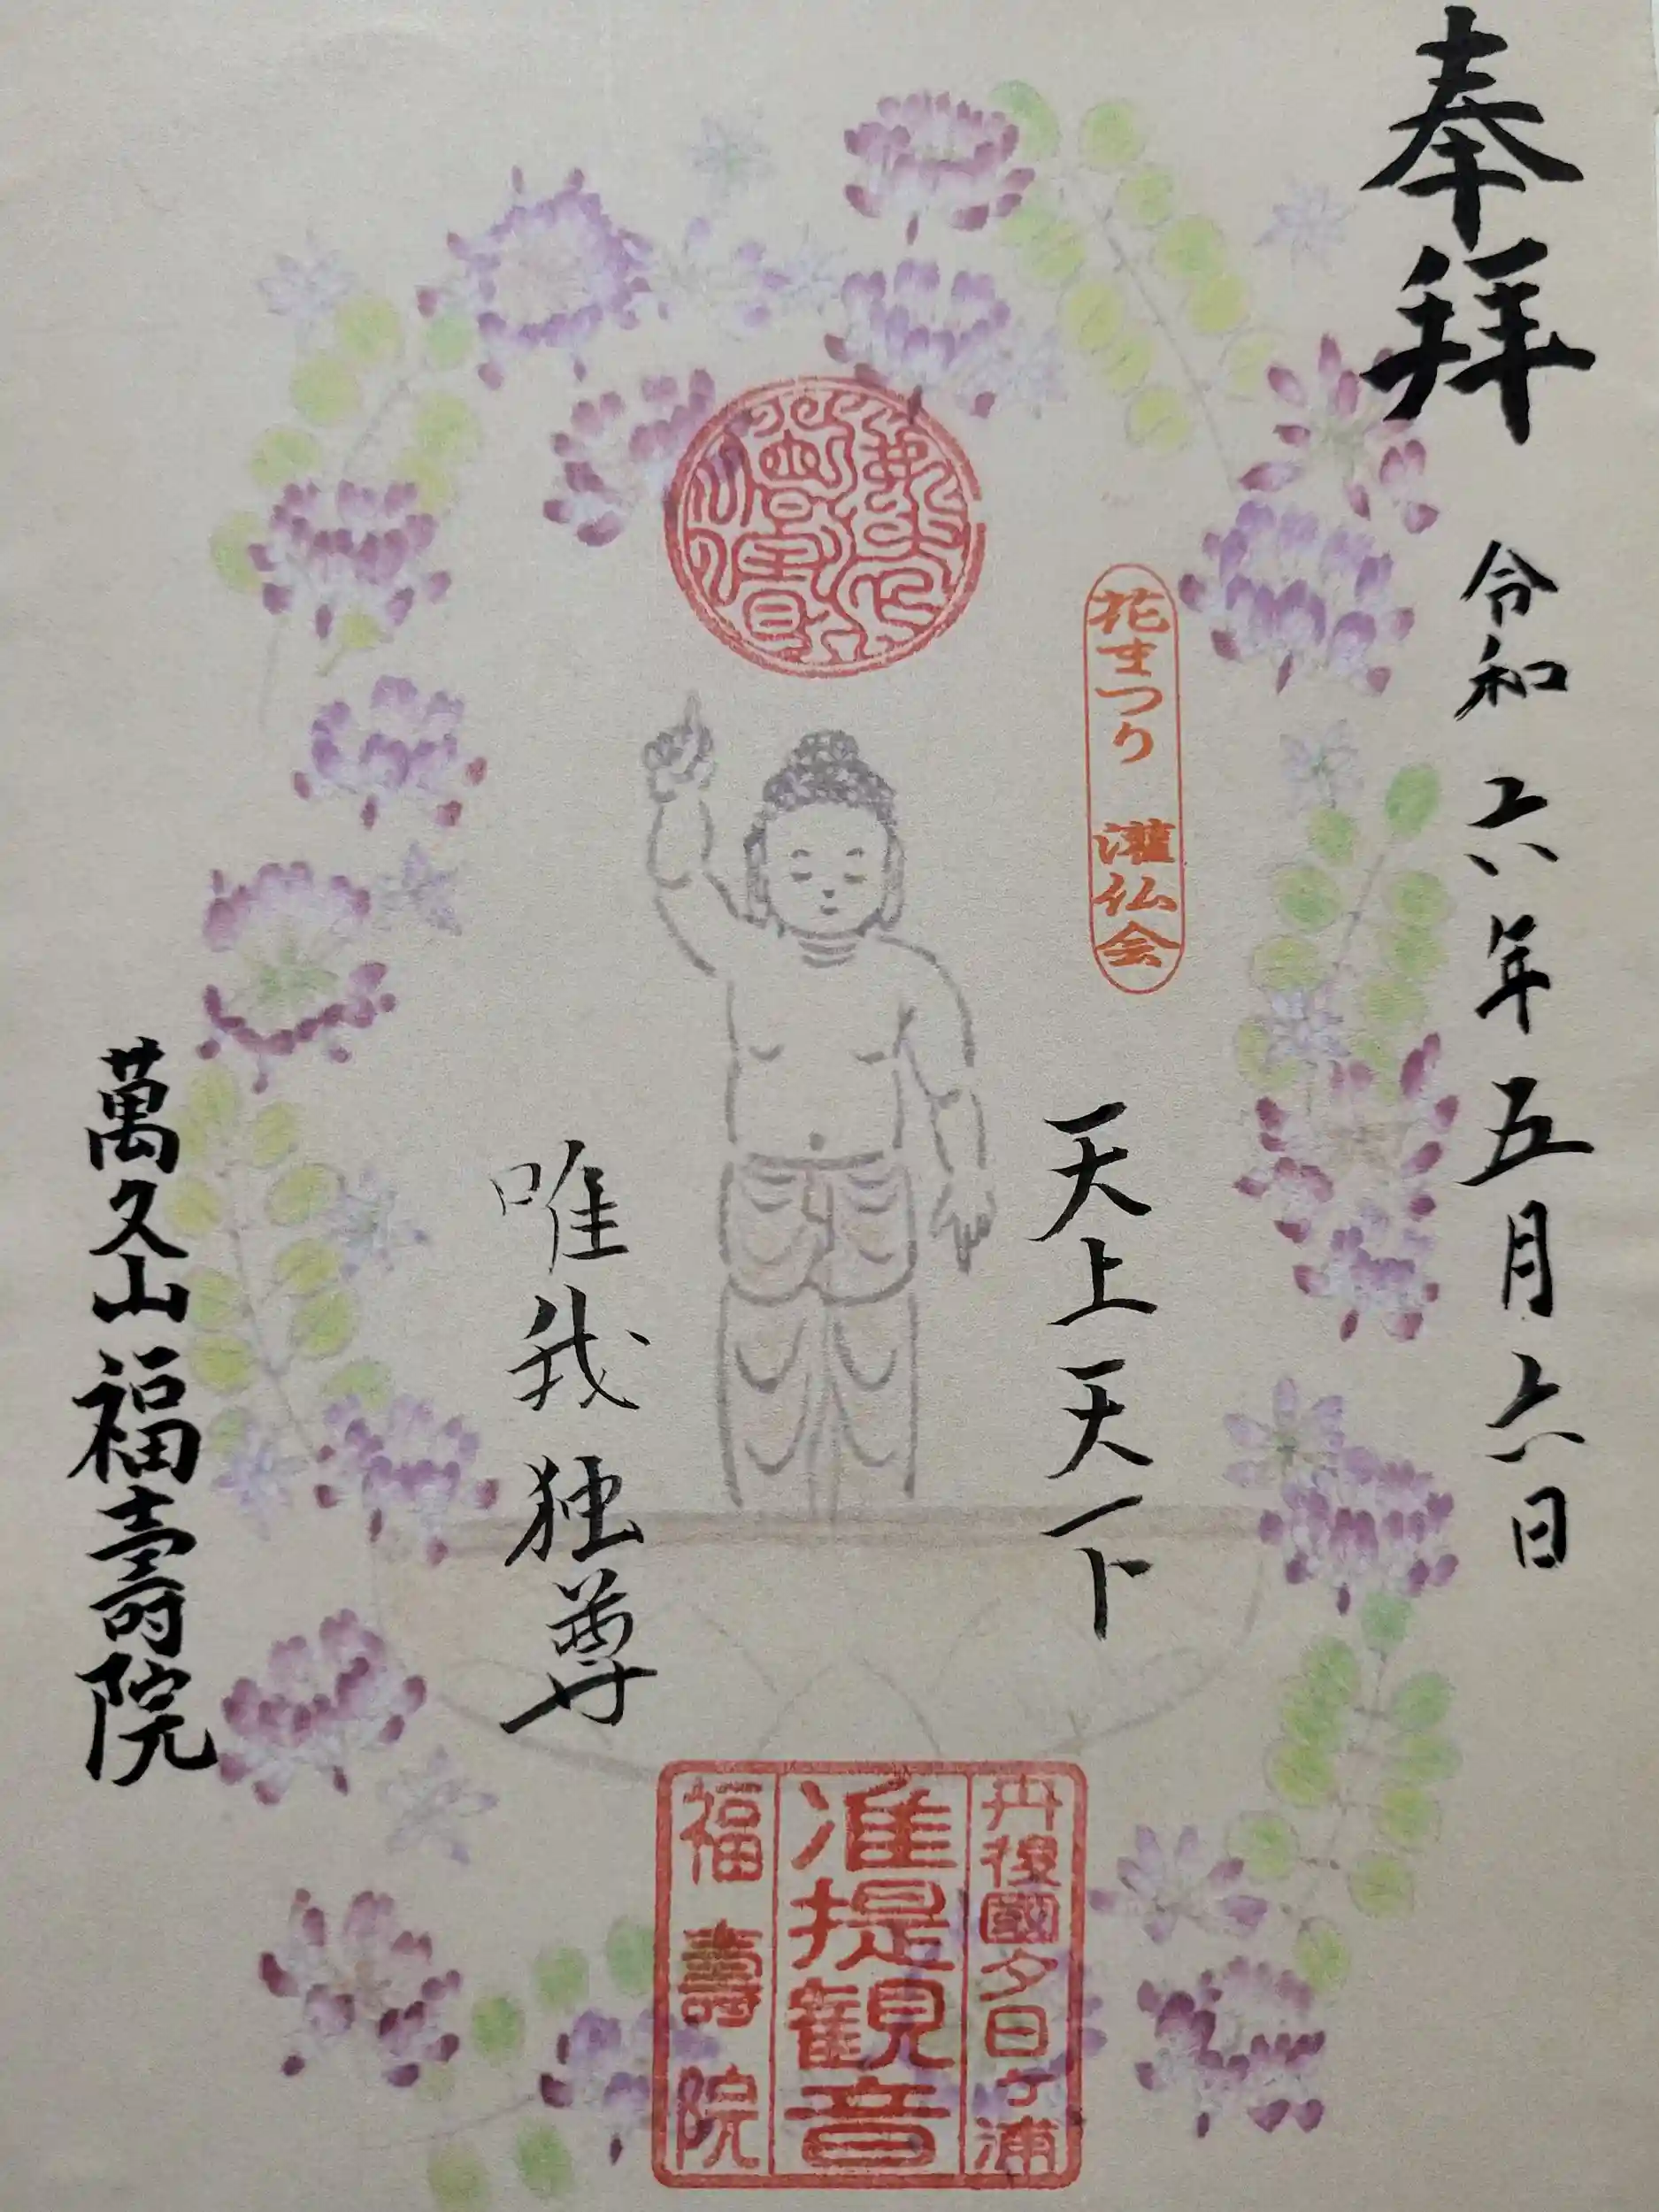 奉拝
令和六年五月六日
花まつり 灌仏会
天上天下
唯我独尊
萬久山福壽院
丹後國夕日ヶ浦
准提観音
福壽院